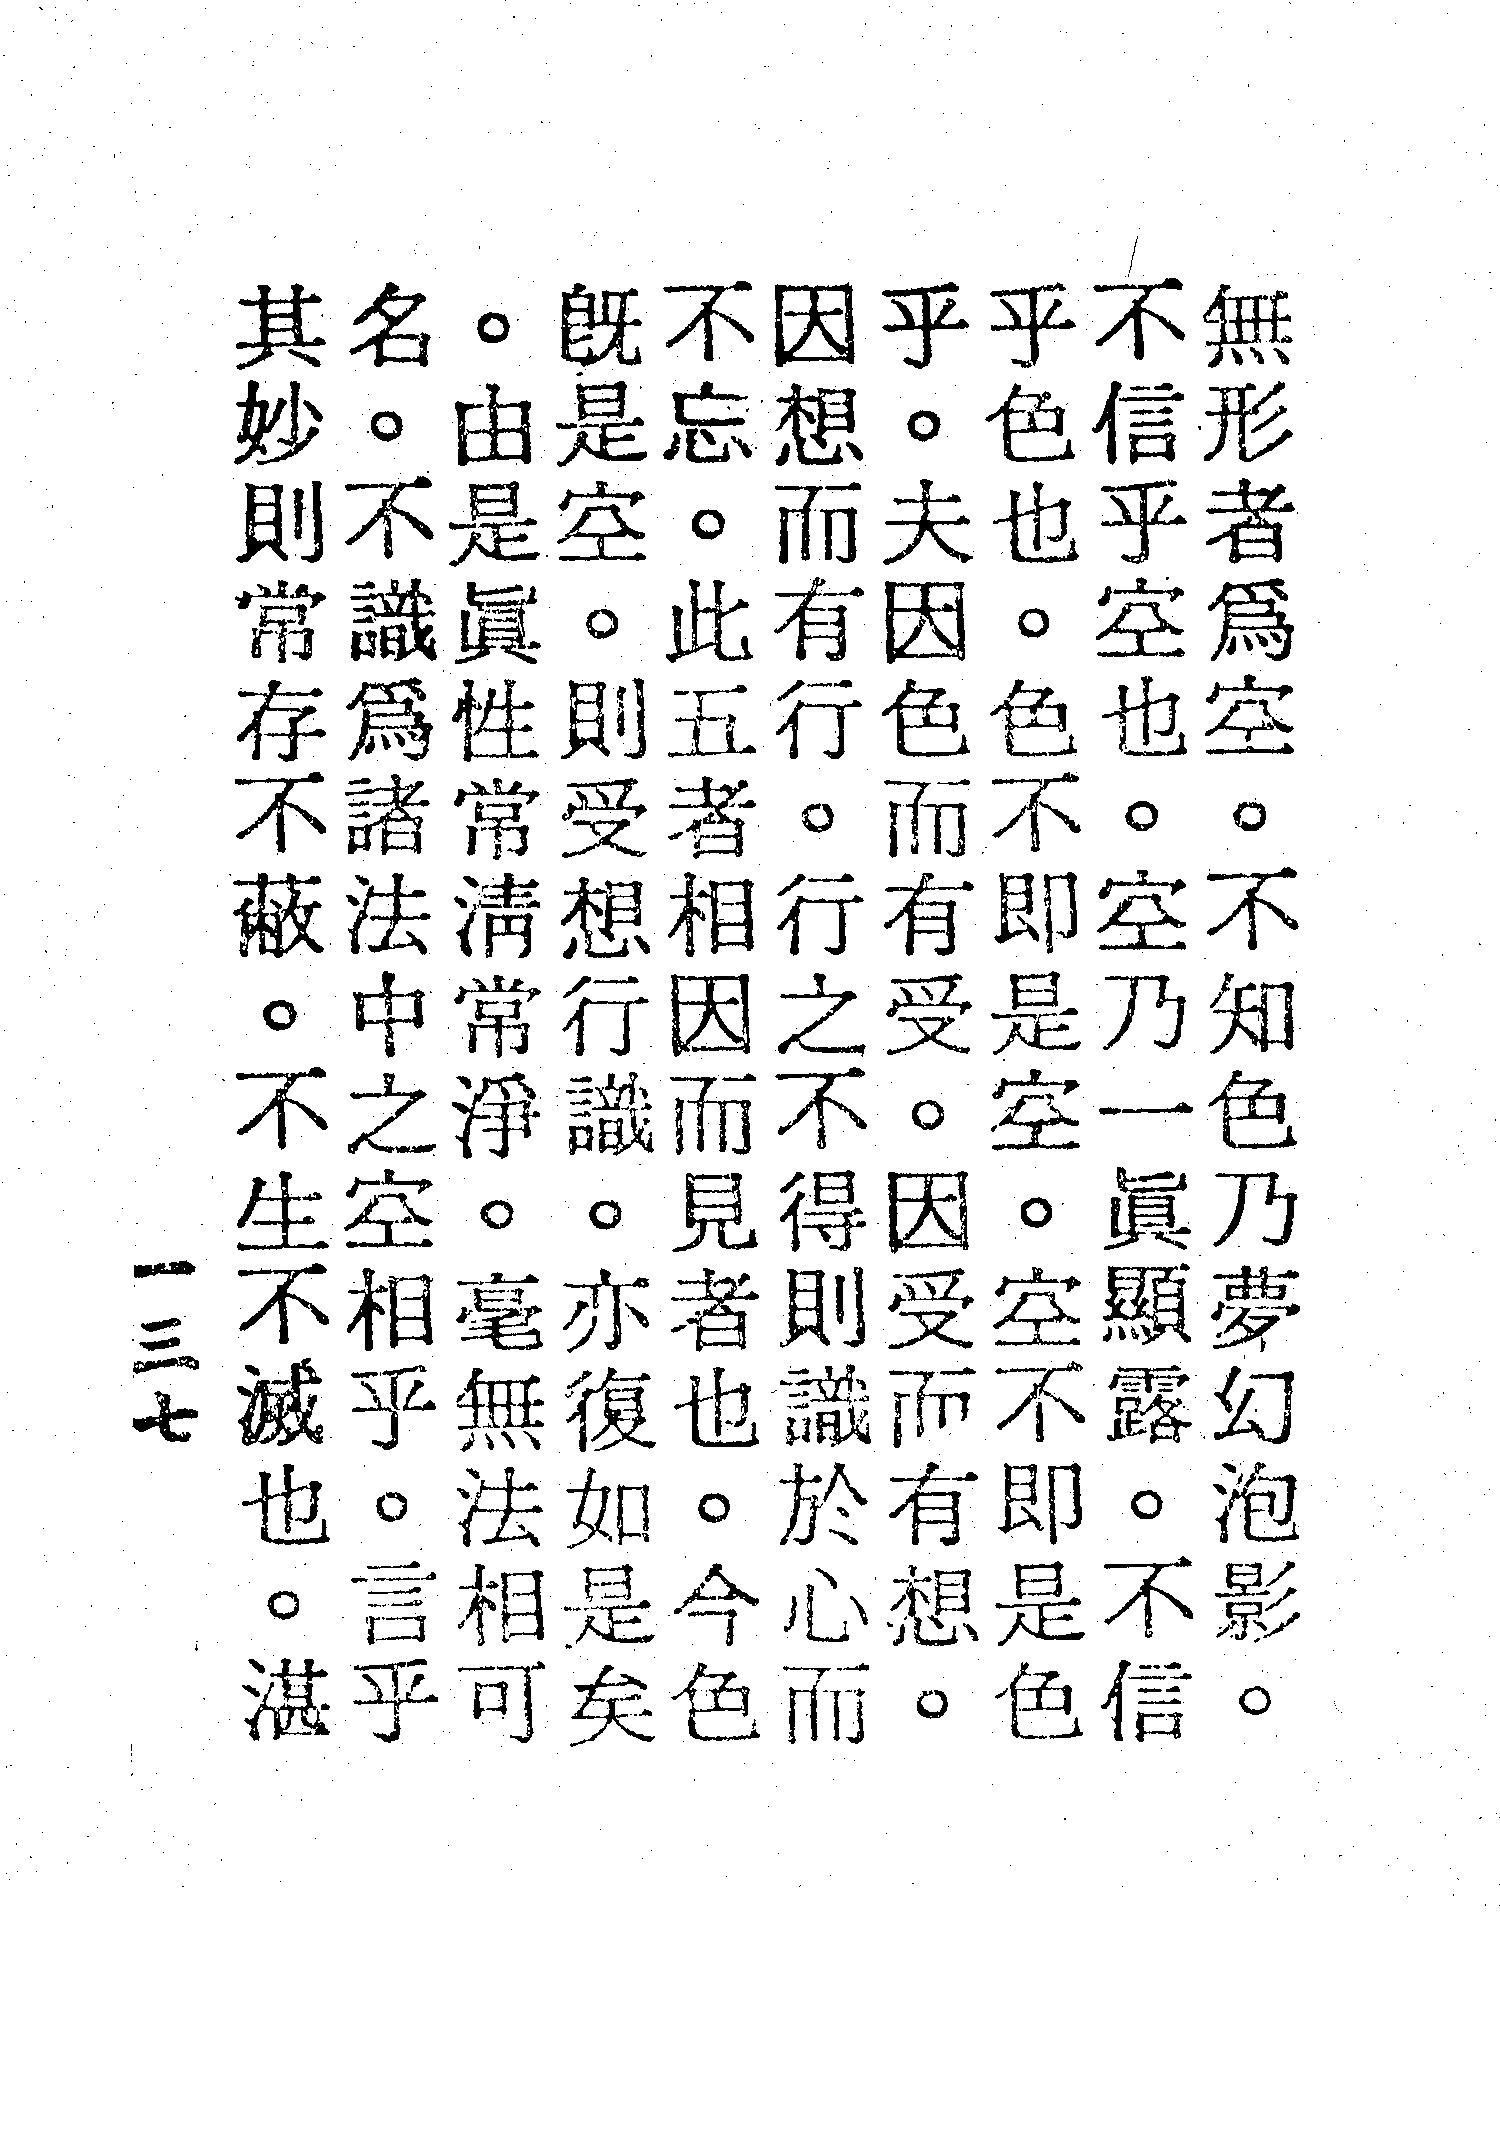 無形者爲空。不知色乃夢幻泡影。
不信乎空也。空乃一眞顯露。不信
乎色也。色不即是空。空不即是色
乎。夫因色而有受。因受而有想。
因想而有行。行之不得則識於心而
不忘。此五者相因而見者也。今色
旣是空。則受想行識。亦復如是矣
。由是眞性常淸常淨。毫無法相可
名。不識爲諸法中之空相乎。言乎
其妙則常存不蔽。不生不滅也。湛
一三七